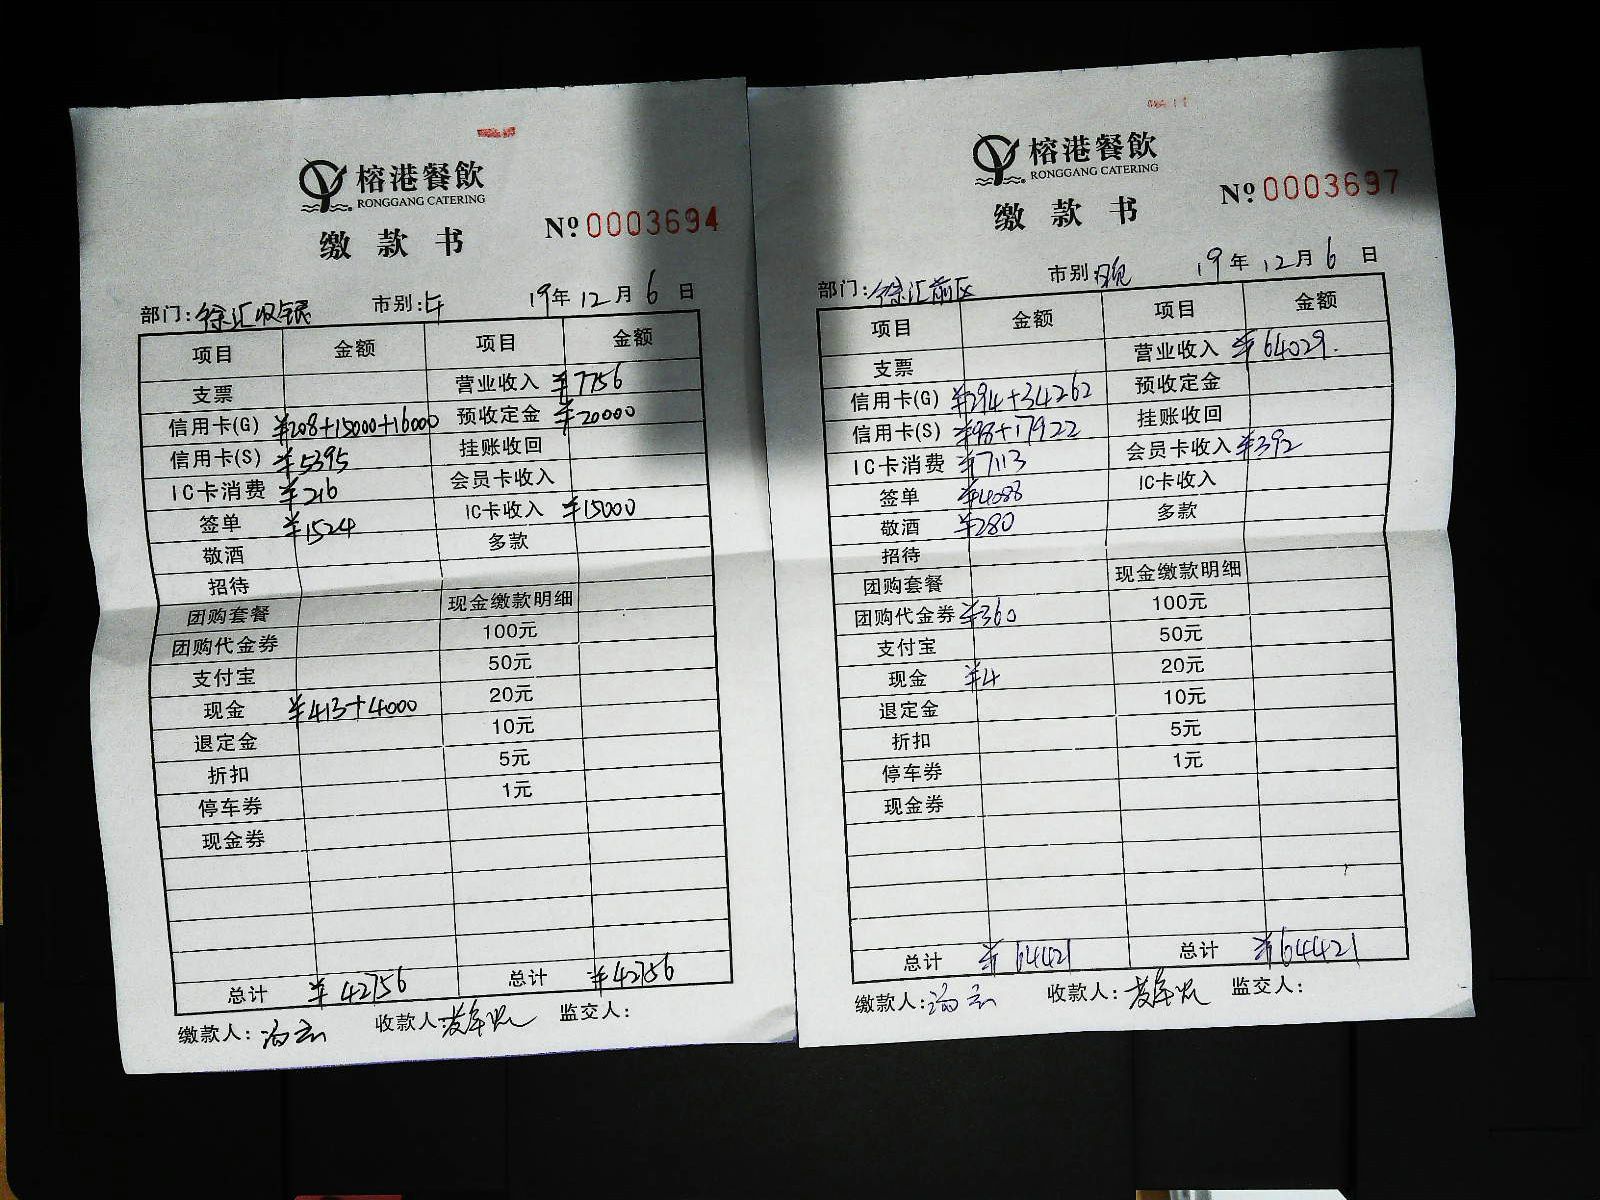 榕港餐飲
RONGGANG CATERING
缴款书
Nº 0003694
部门:徐汇收银 市别:午 19年12月6日
项目 金额 项目 金额
支票 营业收入 ¥7756
信用卡(G) ¥208+15000+16000 预收定金 ¥20000
信用卡(S) ¥5395 挂账收回
IC卡消费 ¥216 会员卡收入
签单 ¥1524 IC卡收入 ¥15000
敬酒 多款
招待
团购套餐 现金缴款明细
团购代金券 100元
支付宝 50元
现金 ¥413+4000 20元
退定金 10元
折扣 5元
停车券 1元
现金券
总计 ¥42756 总计 ¥42756
缴款人: 收款人: 监交人:
榕港餐飲
RONGGANG CATERING
缴款书
Nº 0003697
部门:徐汇前区 市别:晚 19年12月6日
项目 金额 项目 金额
支票 营业收入 ¥64029.
信用卡(G) ¥294+34262 预收定金
信用卡(S) ¥98+17922 挂账收回
IC卡消费 ¥7113 会员卡收入 ¥392
签单 ¥4088 IC卡收入
敬酒 ¥280 多款
招待
团购套餐 现金缴款明细
团购代金券 ¥360 100元
支付宝 50元
现金 ¥4 20元
退定金 10元
折扣 5元
停车券 1元
现金券
总计 ¥64421 总计 ¥64421
缴款人: 收款人: 监交人: